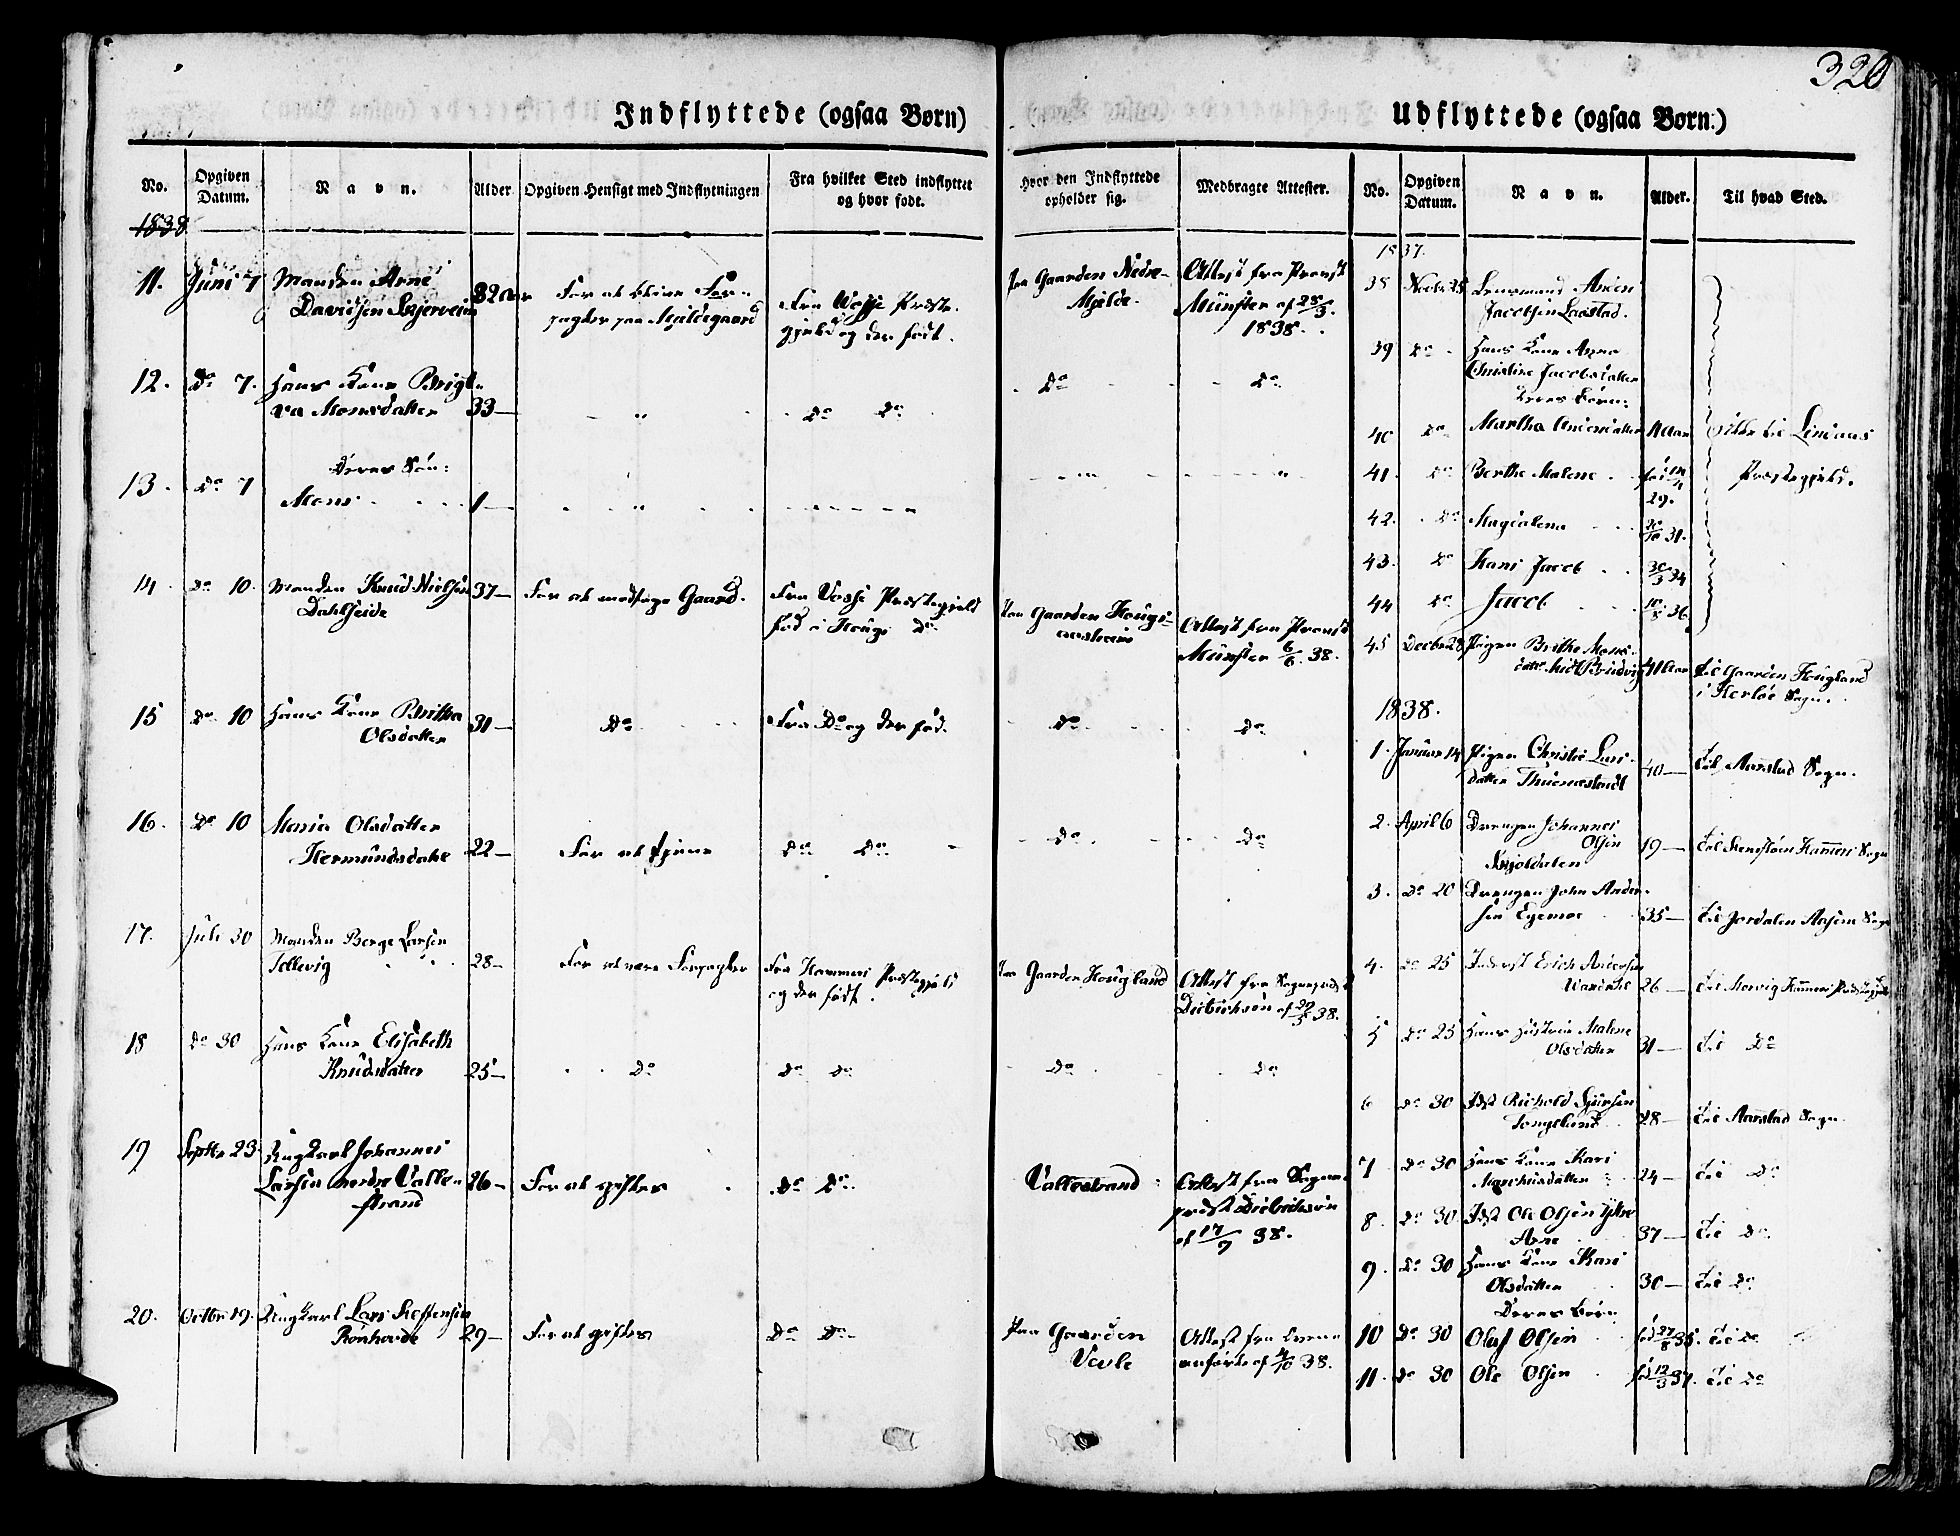 320
Indflyttede (ogsaa Børn)
No. Opgiven Datum. Navn. Alder Opgiven Hensigt med Indflytningen Fra hvilket Sted indflyttet og hvor født.
1838
11. Juni 7 Manden Arne 32 Aar For at blive For- Fra Wosse Præste-
Davidsen Skjerveim pagter paa Mjeldegaard gjeld og der født.
12. Do 7. Hans Kone Brigt- 33— " Do Do
va Monsdatter
Deres Søn:
13. Do 7 Mons 1— "
14. Do 10. Manden Knud Nielsen 37— For at modtage Gaard. Fra Vosse Præstegjeld
Dahlseide fød i Hougs Do
15 Do 10 Hans Kone Britha 31— Do Fra Do og der fød.
Olsdatter
16. Do 10 Maria Olsdatter 22— For at tjene Do Do
Hermundsdahl
17. Juli 30 Manden Børge Larsen 28— For at være Forpagter Fra Hammers Præstegjeld
Tellevig og der født.
18 Do 30 Hans Kone Elisabeth 25— Do Do Do
Knudsdatter
19 Septbr 23. Ungkarl Johannes
Larsen nedre Valle- 26— For at giftes Do Do
strand
20. Octbr 19. Ungkarl Lars Steffensen 29— For at giftes Do Do
Rønhovde
Udflyttede (ogsaa Børn.)
Hvor den Indflyttede opholder sig. Medbragte Attester. No. Opgiven Datum. Navn. Alder. Til hvad Sted.
Paa Gaarden Nedre- Attest fra Provst
Mjelde. Münster af 28/3.
1838.
Do Do
"
Paa Gaarden Hougs- Attest fra Provst
Münster 6/6. 38.
Do Do
Do Do
Paa Gaarden Hougland Attest fra Sognepræst
Dietrichson af 29/5 38.
Do Do
Vallestrand Attest fra Sogne-
præst Dietrichson
af 17/9 38.
Paa Gaarden Attest fra
Vevle anførte af 4/10 38.
1837.
38 Novbr 25 Lensmand Anders
Jacobsen Laastad.
39 Do Hans Kone Anne
Christine Jacobsdatter
Deres Børn:
40 Do Martha Andersdatter 11 Aar Alle til Lindaas
41. Do Berthe Malene fød 14/4 29. Præstegjeld.
42. Do Magdalena 20/10 31.
43. Do Hans Jacob 30/3 34
44 Do Jacob 10/8 36.
45 Decbr 28 Pigen Brithe Mons- 41 Aar til Gaarden Hougland
i Herløe Sogn.
1838.
1. Januar 14 Pigen Christi Lars- 40— til Aarstad Sogn.
datter Thunestvedt
2. April 6 Drengen Johannes
Olsen 19— til Steenstøen Hammers Sogn
Skjoldalen
3. Do 20 Drengen John Ander-
sen Egemoe 35— til Jordalen Aasene Sogn
4. Do 25 Inderst Erich Andersen 26— til Mervig Hammers Præstegjeld
5 Do 25 Hans Hustrue Malene 31— til Do
Olsdatter
6 Do 30 Idst Richold Sjursen 28— til Aarstad Sogn.
Tongelund
7 Do 30 Hans Kone Kari 24— til Do
Monsdatter
8. Do 30. Idst Ole Olsen Ytre 37— til Do
Arne
9. Do 30 Hans Kone Kari 30— til Do
Olsdatter
Deres Børn
10 Do 30 Oluf Olsen fød 27/8 35. til Do
11. Do 30 Ole Olsen fød 12/3 37. til Do